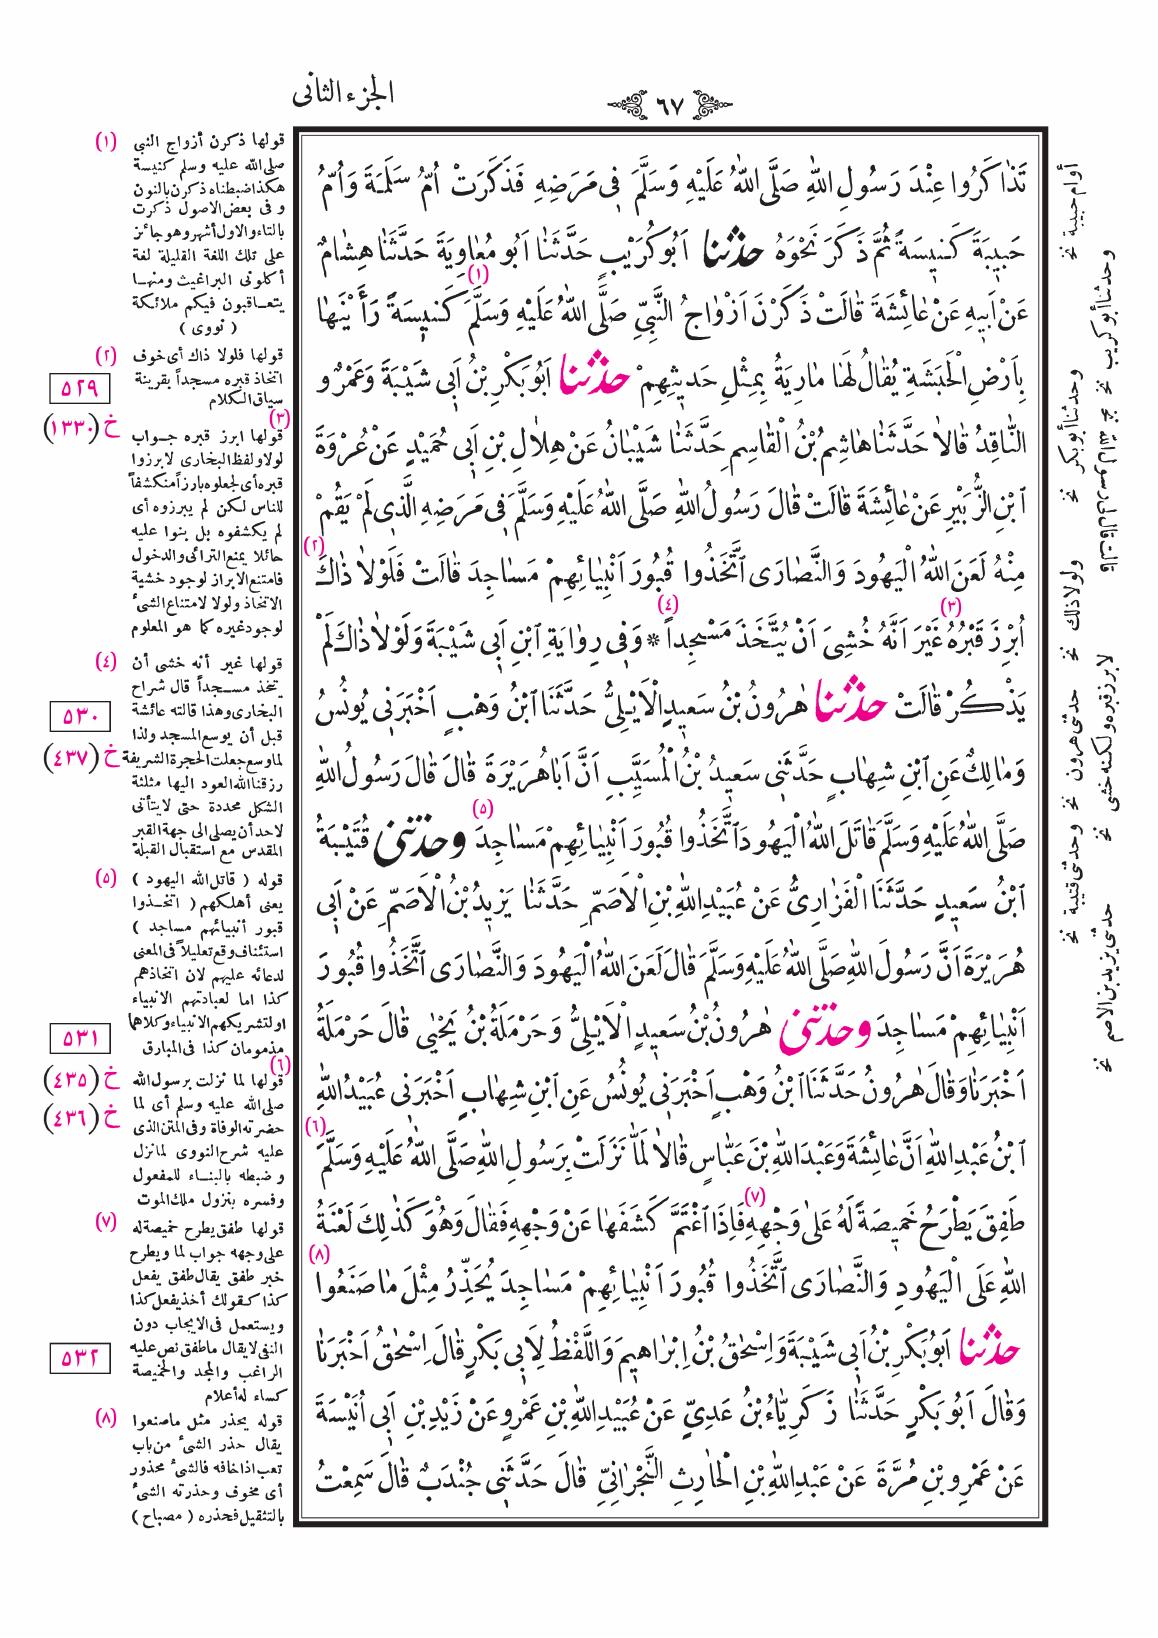 الجزء الثانى
٦٧
تَذَاكَرُوا عِنْدَ رَسُولِ اللهِ صَلَّى اللهُ عَلَيْهِ وَسَلَّمَ فِى مَرَضِهِ فَذَكَرَتْ اُمُّ سَلَمَةَ وَاُمُّ
حَبِيبَةَ كَنِيسَةً ثُمَّ ذَكَرَ نَحْوَهُ حدثنا اَبُو كُرَيْبٍ حَدَّثَنَا اَبُو مُعَاوِيَةَ حَدَّثَنَا هِشَامٌ
عَنْ اَبِيهِ عَنْ عَائِشَةَ قَالَتْ (١) ذَكَرْنَ اَزْوَاجُ النَّبِىِّ صَلَّى اللهُ عَلَيْهِ وَسَلَّمَ كَنِيسَةً رَأَيْنَهَا
بِاَرْضِ الْحَبَشَةِ يُقَالُ لَهَا مَارِيَةُ بِمِثْلِ حَدِيثِهِمْ حدثنا اَبُو بَكْرِ بْنُ اَبِى شَيْبَةَ وَعَمْرٌو
النَّاقِدُ قَالَا حَدَّثَنَا هَاشِمُ بْنُ الْقَاسِمِ حَدَّثَنَا شَيْبَانُ عَنْ هِلَالِ بْنِ اَبِى حُمَيْدٍ عَنْ عُرْوَةَ
ابْنِ الزُّبَيْرِ عَنْ عَائِشَةَ قَالَتْ قَالَ رَسُولُ اللهِ صَلَّى اللهُ عَلَيْهِ وَسَلَّمَ فِى مَرَضِهِ الَّذِى لَمْ يَقُمْ
مِنْهُ لَعَنَ اللهُ الْيَهُودَ وَالنَّصَارَى اتَّخَذُوا قُبُورَ اَنْبِيَائِهِمْ مَسَاجِدَ قَالَتْ فَلَوْلَا ذَاكَ (٢)
اُبْرِزَ قَبْرُهُ (٣) غَيْرَ اَنَّهُ خُشِىَ اَنْ يُتَّخَذَ مَسْجِداً (٤) * وَفِى رِوَايَةِ ابْنِ اَبِى شَيْبَةَ وَلَوْلَا ذَاكَ لَمْ
يَذْكُرْ قَالَتْ حدثنا هٰرُونُ بْنُ سَعِيدٍ الْاَيْلِىُّ حَدَّثَنَا ابْنُ وَهْبٍ اَخْبَرَنِى يُونُسُ
وَمَالِكٌ عَنِ ابْنِ شِهَابٍ حَدَّثَنِى سَعِيدُ بْنُ الْمُسَيَّبِ اَنَّ اَبَا هُرَيْرَةَ قَالَ قَالَ رَسُولُ اللهِ
صَلَّى اللهُ عَلَيْهِ وَسَلَّمَ قَاتَلَ اللهُ الْيَهُودَ اتَّخَذُوا قُبُورَ اَنْبِيَائِهِمْ مَسَاجِدَ (٥) وحدثنى قُتَيْبَةُ
ابْنُ سَعِيدٍ حَدَّثَنَا الْفَزَارِىُّ عَنْ عُبَيْدِ اللهِ بْنِ الْاَصَمِّ حَدَّثَنَا يَزِيدُ بْنُ الْاَصَمِّ عَنْ اَبِى
هُرَيْرَةَ اَنَّ رَسُولَ اللهِ صَلَّى اللهُ عَلَيْهِ وَسَلَّمَ قَالَ لَعَنَ اللهُ الْيَهُودَ وَالنَّصَارَى اتَّخَذُوا قُبُورَ
اَنْبِيَائِهِمْ مَسَاجِدَ وحدثنى هٰرُونُ بْنُ سَعِيدٍ الْاَيْلِىُّ وَحَرْمَلَةُ بْنُ يَحْيٰى قَالَ حَرْمَلَةُ
اَخْبَرَنَا وَقَالَ هٰرُونُ حَدَّثَنَا ابْنُ وَهْبٍ اَخْبَرَنِى يُونُسُ عَنِ ابْنِ شِهَابٍ اَخْبَرَنِى عُبَيْدُ اللهِ
ابْنُ عَبْدِ اللهِ اَنَّ عَائِشَةَ وَعَبْدَ اللهِ بْنَ عَبَّاسٍ قَالَا لَمَّا نَزَلَتْ بِرَسُولِ اللهِ صَلَّى اللهُ عَلَيْهِ وَسَلَّمَ (٦)
طَفِقَ يَطْرَحُ خَمِيصَةً لَهُ عَلَى وَجْهِهِ (٧) فَاِذَا اغْتَمَّ كَشَفَهَا عَنْ وَجْهِهِ فَقَالَ وَهُوَ كَذٰلِكَ لَعْنَةُ
اللهِ عَلَى الْيَهُودِ وَالنَّصَارَى اتَّخَذُوا قُبُورَ اَنْبِيَائِهِمْ مَسَاجِدَ يُحَذِّرُ مِثْلَ مَا صَنَعُوا (٨)
حدثنا اَبُو بَكْرِ بْنُ اَبِى شَيْبَةَ وَاِسْحٰقُ بْنُ اِبْرَاهِيمَ وَاللَّفْظُ لِاَبِى بَكْرٍ قَالَ اِسْحٰقُ اَخْبَرَنَا
وَقَالَ اَبُو بَكْرٍ حَدَّثَنَا زَكَرِيَّاءُ بْنُ عَدِىٍّ عَنْ عُبَيْدِ اللهِ بْنِ عَمْرٍو عَنْ زَيْدِ بْنِ اَبِى اُنَيْسَةَ
عَنْ عَمْرِو بْنِ مُرَّةَ عَنْ عَبْدِ اللهِ بْنِ الْحَارِثِ النَّجْرَانِىِّ قَالَ حَدَّثَنِى جُنْدَبٌ قَالَ سَمِعْتُ
أوأم حبيبة نخ
وحدثنا أبو كريب نخ
وحدثنا أبو بكر نخ
ولولا ذلك نخ
لابرز قبره ولكنه خشى نخ
حدثنى هرون نخ
وحدثنى قتيبة نخ
حدثنى يزيد بن الاصم نخ
(١) قولها ذكرن أزواج النبى
صلى الله عليه وسلم كنيسة
هكذا ضبطناه ذكرن بالنون
و فى بعض الاصول ذكرت
بالتاء والاول أشهر وهو جائز
على تلك اللغة القليلة لغة
أكلونى البراغيث ومنها
يتعاقبون فيكم ملائكة
( نووى )
(٢) قولها فلولا ذاك أى خوف
اتخاذ قبره مسجداً بقرينة
سياق الكلام
٥٢٩
خ (١٣٣٠)
(٣) قولها ابرز قبره جواب
لولا ولفظ البخارى لابرزوا
قبره أى لجعلوه بارزاً منكشفاً
للناس لكن لم يبرزوه أى
لم يكشفوه بل بنوا عليه
حائلا يمنع الترائى والدخول
فامتنع الابراز لوجود خشية
الاتخاذ ولولا لامتناع الشىء
لوجود غيره كما هو المعلوم
(٤) قولها غير أنه خشى أن
يتخذ مسجداً قال شراح
البخارى وهذا قالته عائشة
قبل أن يوسع المسجد ولذا
لما وسع جعلت الحجرة الشريفة
رزقنا الله العود اليها مثلثة
الشكل محددة حتى لا يتأتى
لاحد أن يصلى الى جهة القبر
المقدس مع استقبال القبلة
٥٣٠
خ (٤٣٧)
(٥) قوله ( قاتل الله اليهود )
يعنى أهلكهم ( اتخذوا
قبور أنبيائهم مساجد )
استئناف وقع تعليلاً فى المعنى
لدعائه عليهم لان اتخاذهم
كذا اما لعبادتهم الانبياء
اولتشريكهم الانبياء وكلاهما
مذمومان كذا فى المبارق
٥٣١
خ (٤٣٥)
خ (٤٣٦)
(٦) قولها لما نزلت برسول الله
صلى الله عليه وسلم أى لما
حضرته الوفاة وفى المتن الذى
عليه شرح النووى لما نزل
و ضبطه بالبناء للمفعول
وفسره بنزول ملك الموت
(٧) قولها طفق يطرح خميصة له
على وجهه جواب لما و يطرح
خبر طفق يقال طفق يفعل
كذا كقولك أخذ يفعل كذا
ويستعمل فى الايجاب دون
النفى لا يقال ما طفق نص عليه
الراغب والمجد والخميصة
كساء له أعلام
٥٣٢
(٨) قوله يحذر مثل ما صنعوا
يقال حذر الشىء من باب
تعب اذا خافه فالشىء محذور
أى مخوف وحذرته الشىء
بالتثقيل فحذره ( مصباح )